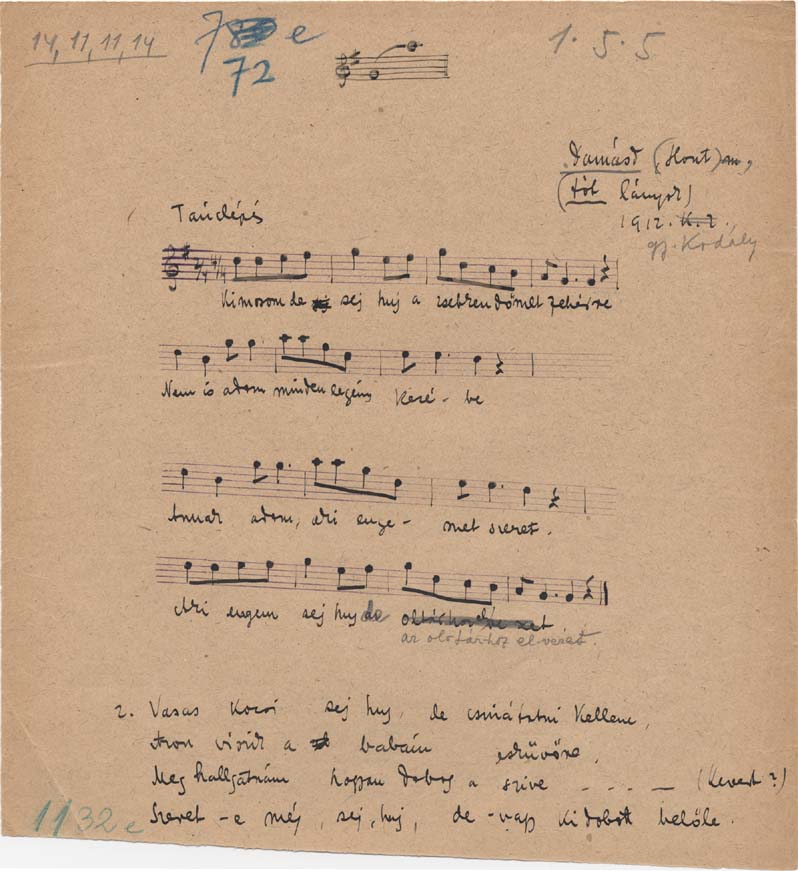 14, 11, 11, 14
78 e
72
1. 5. 5
Damásd (Hont) m,
(tót lányok)
1912.
gy. Kodály
Tánclépés
Kimosom de sej huj a zsebkendőmet fehérre
Nem is adom minden legény kezé - be
Annak adom, aki enge - met szeret.
Aki engem sej huj de
az oltárhoz elvezet.
2. Vasas kocsi sej huj, de csináltatni kellene,
Azon viszik a babám esküvőre,
Meg hallgatnám hogyan dobog a szive - - - - (Kevert?)
Szeret-e még, sej, huj, de vagy kidobott belőle.
1132 e